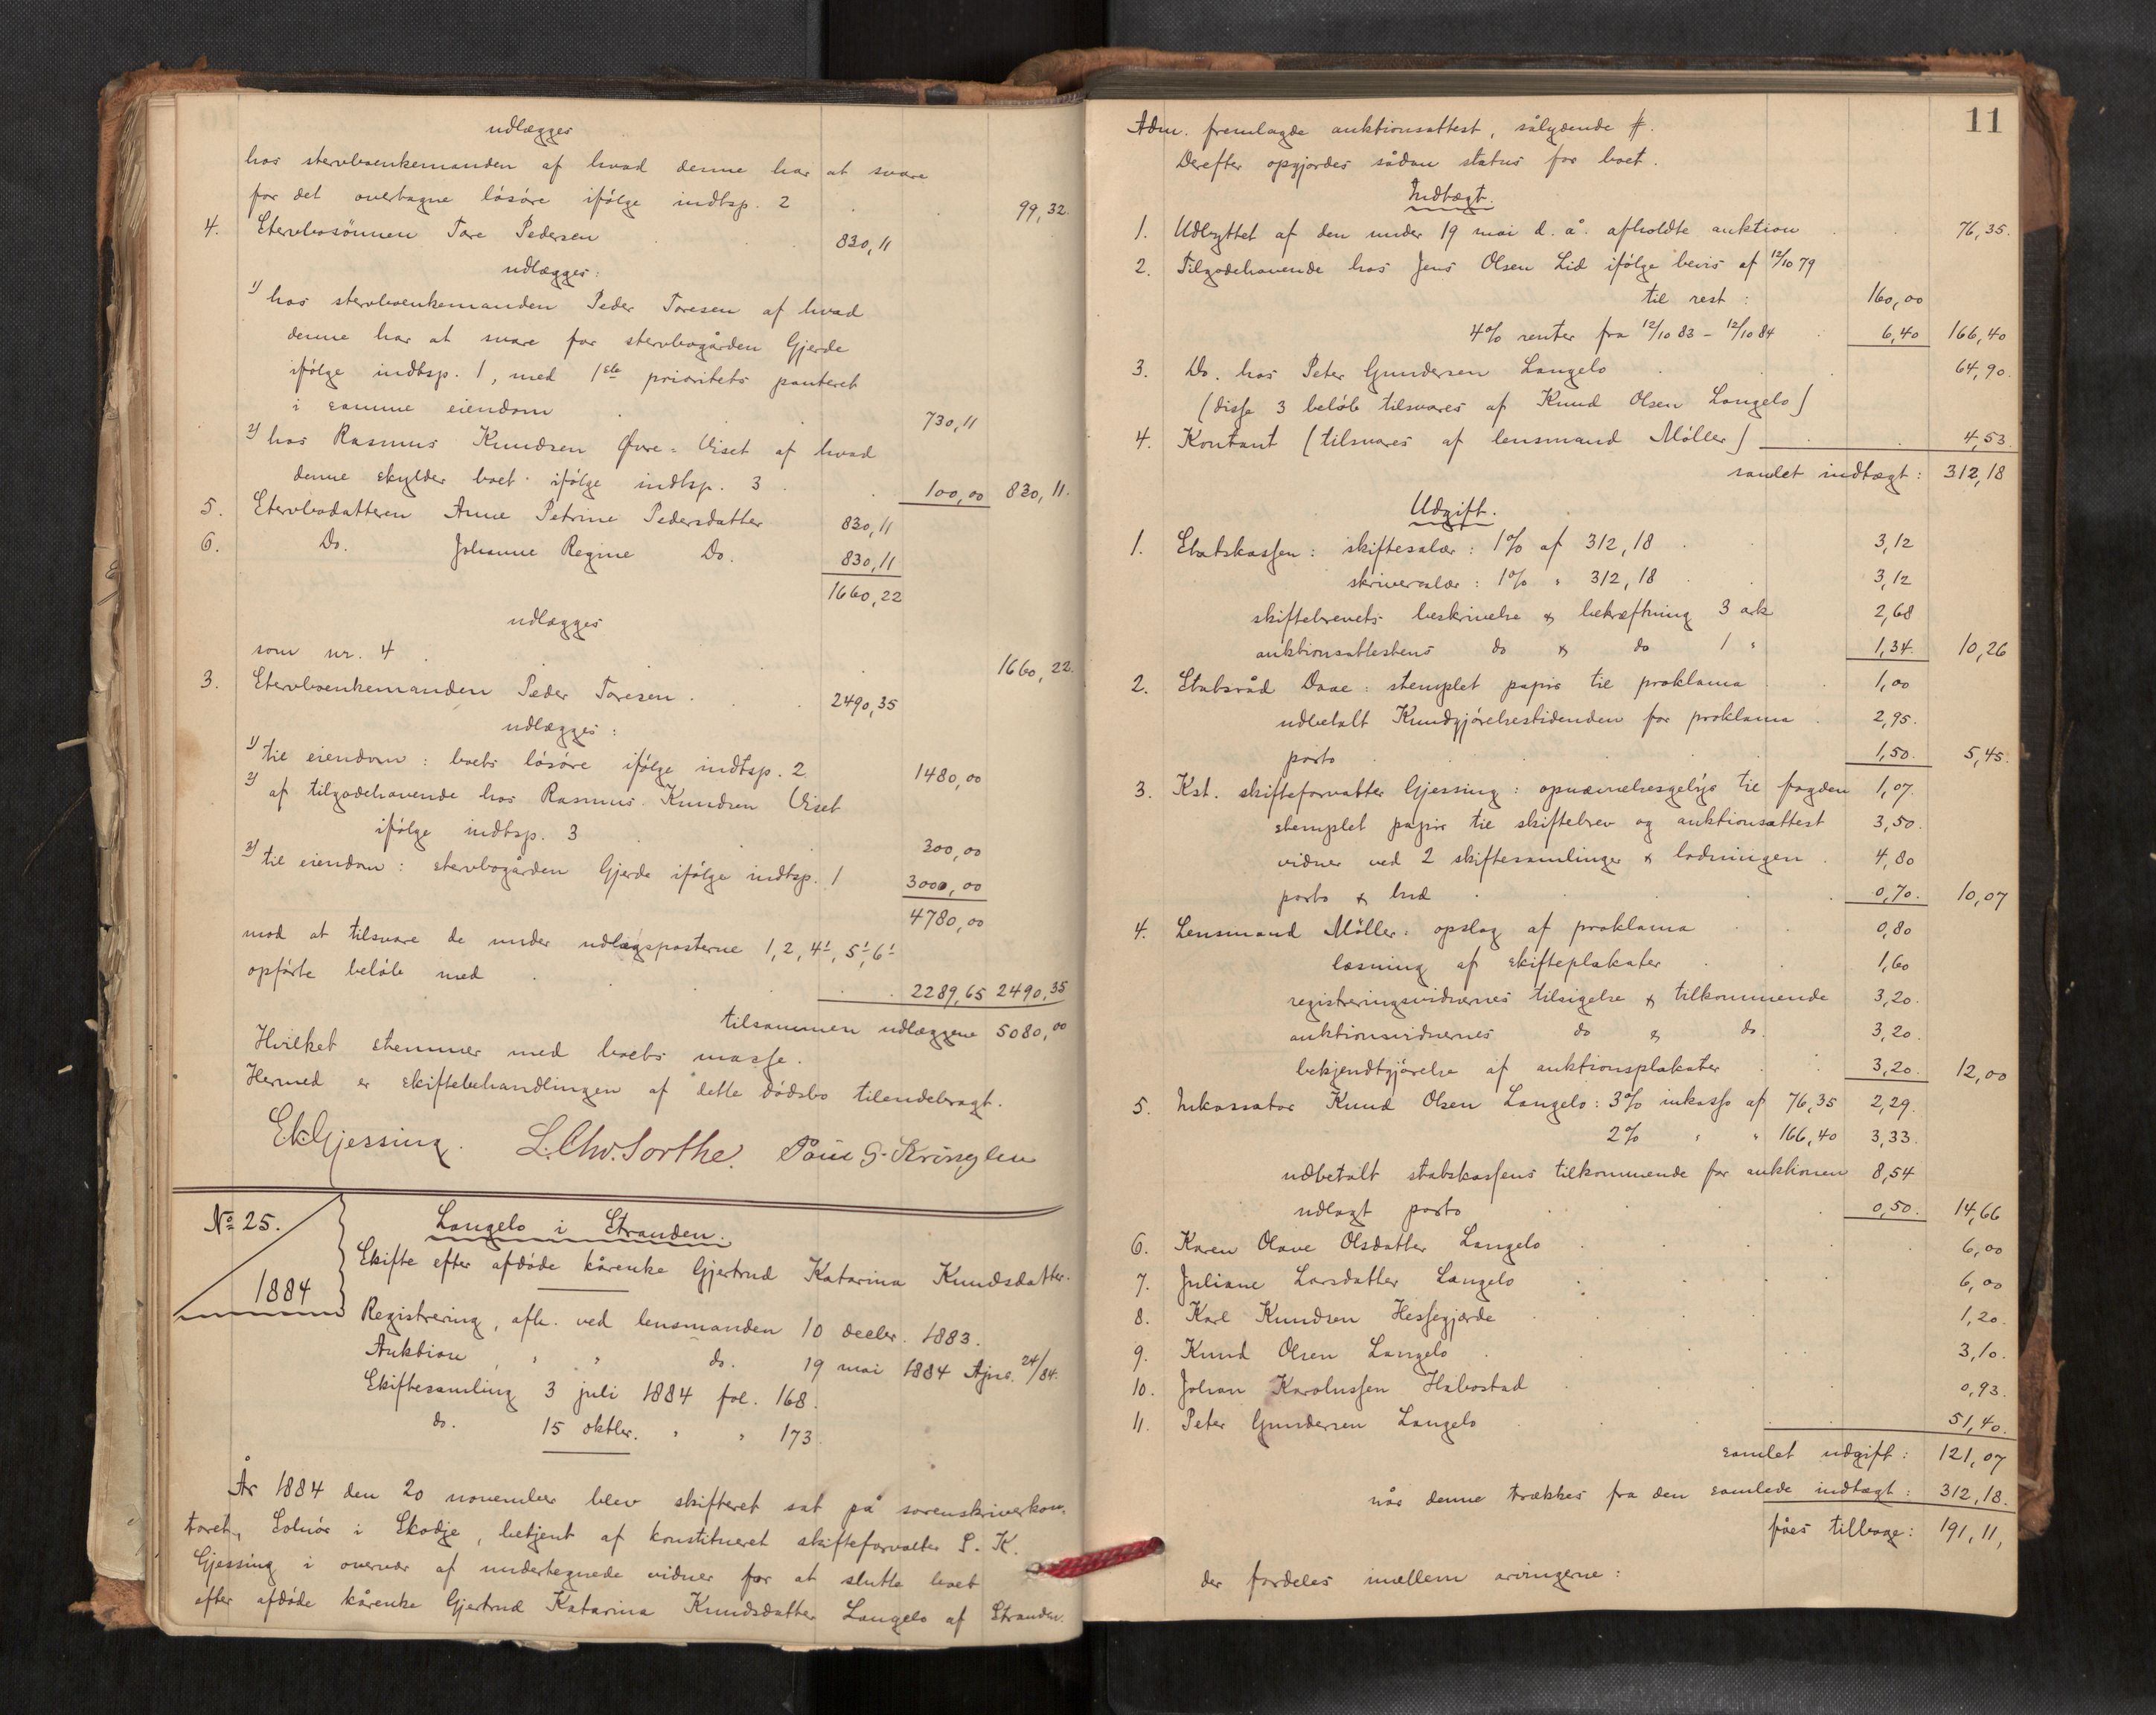 udlægges
hos stervboenkemanden af hvad denne har at svare
for det overtagne lösöre ifölge indtsp. 2 . . 99,32.
4. Stervbosönnen Tore Pedersen . . 830,11
udlægges:
1) hos stervboenkemanden Peder Toresen af hvad
denne har at svare for stervbogården Gjerde
ifölge indtsp. 1, med 1ste prioritets panteret
i samme eiendom . . 730,11
2) hos Rasmus Knudsen Øvre=Viset af hvad
denne skylder boet ifölge indtsp. 3 . . 100,00 830,11.
5. Stervbodatteren Anne Petrine Pedersdatter 830,11
6. Do. Johanne Regine Do. 830,11
1660,22
udlægges
som nr. 4 . . 1660,22.
3. Stervboenkemanden Peder Toresen . . 2490,35
udlægges:
1) til eiendom: boets lösöre ifölge indtsp. 2 1480,00
2) af tilgodehavende hos Rasmus Knudsen Viset
ifölge indtsp. 3 . . 300,00
3) til eiendom: stervbogården Gjerde ifölge indtsp. 1 3000,00
4780,00
mod at tilsvare de under udlægsposterne 1, 2, 4¹, 5¹, 6¹
opförte belöb med . . . 2289,65 2490,35
tilsammen udlæggene 5080,00
Hvilket stemmer med boets masse.
Hermed er skiftebehandlingen af dette dödsbo tilendebragt.
EkGjessing. L. Chr. Sorthe. Paul G. Kringlen
No 25.
1884
Langelo i Stranden.
Skifte efter afdöde kårenke Gjertrud Katarina Knudsdatter.
Registrering, afh. ved lensmanden 10 decbr. 1883.
Auktion , " " do. 19 mai 1884 Ajno. 24/84.
Skiftesamling 3 juli 1884 fol. 168.
do. 15 oktbr. " " 173.
År 1884 den 20 november blev skifteret sat på sorenskriverkon-
toret, Solnör i Skodje, betjent af konstitueret skifteforvalter S. K.
Gjessing i overvær af undertegnede vidner for at slutte boet
efter afdöde kårenke Gjertrud Katarina Knudsdatter Langelo af Stranden.
11
Adm. fremlagde auktionsattest, sålydende #.
Derefter opgjordes sådan status for boet.
Indtægt.
1. Udbyttet af den under 19 mai d. å. afholdte auktion . . 76,35.
2. Tilgodehavende hos Jens Olsen Lid ifölge bevis af 12/10 79
til rest: 160,00
4% renter fra 12/10 83 - 12/10 84 : 6,40 166,40
3. Do. hos Peter Gundersen Langelo . . 64,90.
(disse 3 belöb tilsvares af Knud Olsen Langelo)
4. Kontant (tilsvares af lensmand Möller) . . 4,53.
samlet indtægt: 312,18
Udgift.
1. Statskassen: skiftesalær: 1% af 312,18 . 3,12
skriversalær: 1% " 312,18 . . 3,12
skiftebrevets beskrivelse & bekræftning 3 ark 2,68
auktionsattestens do & do 1 " 1,34. 10,26
2. Statsråd Daae: stemplet papir til proklama . 1,00
udbetalt Kundgjörelsestidenden for proklama . 2,95.
porto . . . 1,50. 5,45.
3. Kst. skifteforvalter Gjessing: opnævnelsesgebyr til fogden 1,07.
stemplet papir til skiftebrev og auktionsattest 3,50.
vidner ved 2 skiftesamlinger & lodningen . 4,80
porto & bud . . . 0,70. 10,07
4. Lensmand Möller: opslag af proklama . . 0,80
læsning af skifteplakater . . 1,60
registreringsvidnernes tilsigelse & tilkommende 3,20.
auktionsvidnernes do & do. 3,20.
bekjendtgjörelse af auktionsplakater . . 3,20. 12,00
5. Inkassator Knud Olsen Langelo: 3% inkasso af 76,35 2,29.
2% " " 166,40 3,33.
udbetalt statskassens tilkommende for auktionen 8,54
udlagt porto . . . 0,50. 14,66
6. Karen Olave Olsdatter Langelo . . . 6,00
7. Juliane Larsdatter Langelo . . . 6,00
8. Karl Knudsen Hessegjerde . . . 1,20.
9. Knud Olsen Langelo . . . 3,10.
10. Johan Karolussen Habostad . . . 0,93.
11. Peter Gundersen Langelo . . . 51,40.
samlet udgift: 121,07
når denne trækkes fra den samlede indtægt: 312,18.
fåes tilbage: 191,11,
der fordeles mellem arvingerne: